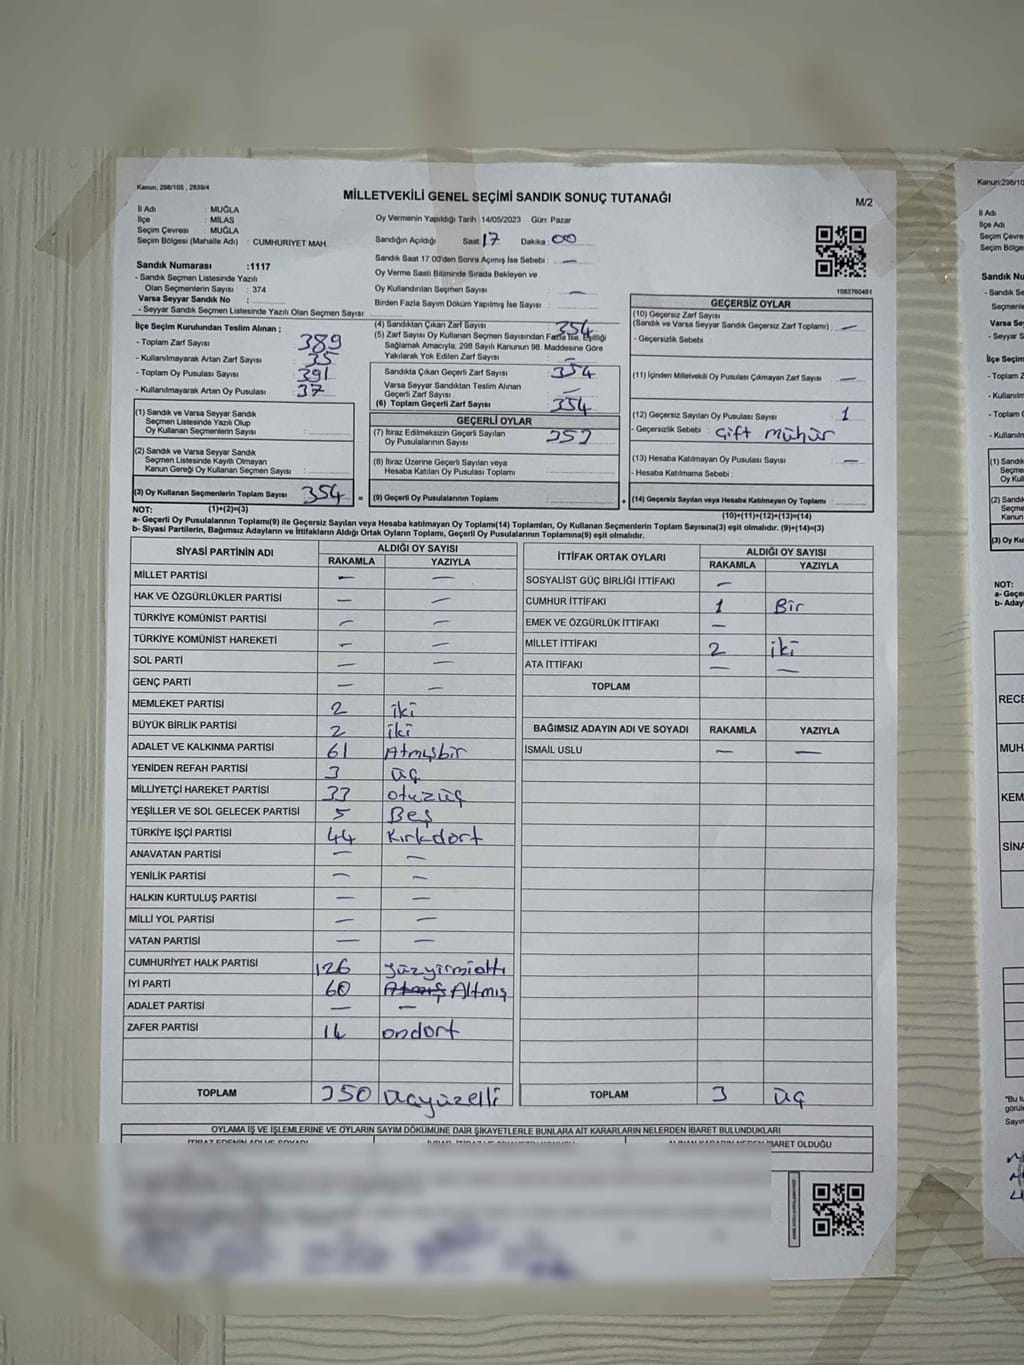 Kanun; 298/105 , 2839/4
MİLLETVEKİLİ GENEL SEÇİMİ SANDIK SONUÇ TUTANAĞI
M/2
İl Adı : MUĞLA
İlçe : MİLAS
Seçim Çevresi : MUĞLA
Seçim Bölgesi (Mahalle Adı) : CUMHURİYET MAH.
Oy Vermenin Yapıldığı Tarih :14/05/2023 Gün: Pazar
Sandığın Açıldığı Saat: 17 Dakika: 00
Sandık Saat 17:00'den Sonra Açımış İse Sebebi : —
Oy Verme Saati Bitiminde Sırada Bekleyen ve
Oy Kullandırılan Seçmen Sayısı : —
Birden Fazla Sayım Döküm Yapılmış İse Sayısı :
1083760401
Sandık Numarası :1117
- Sandık Seçmen Listesinde Yazılı
Olan Seçmenlerin Sayısı : 374
Varsa Seyyar Sandık No :
- Seyyar Sandık Seçmen Listesinde Yazılı Olan Seçmen Sayısı:
İlçe Seçim Kurulundan Teslim Alınan ;
- Toplam Zarf Sayısı : 389
- Kullanılmayarak Artan Zarf Sayısı : 35
- Toplam Oy Pusulası Sayısı : 391
- Kullanılmayarak Artan Oy Pusulası : 37
(1) Sandık ve Varsa Seyyar Sandık
Seçmen Listesinde Yazılı Olup
Oy Kullanan Seçmenlerin Sayısı :
(2) Sandık ve Varsa Seyyar Sandık
Seçmen Listesinde Kayıtlı Olmayan
Kanun Gereği Oy Kullanan Seçmen Sayısı :
(3) Oy Kullanan Seçmenlerin Toplam Sayısı : 354 =
(1)+(2)=(3)
(4) Sandıktan Çıkan Zarf Sayısı : 354
(5) Zarf Sayısı Oy Kullanan Seçmen Sayısından Fazla İse, Eşitliği
Sağlamak Amacıyla, 298 Sayılı Kanunun 98. Maddesine Göre
Yakılarak Yok Edilen Zarf Sayısı : —
Sandıkta Çıkan Geçerli Zarf Sayısı : 354
Varsa Seyyar Sandıktan Teslim Alınan
Geçerli Zarf Sayısı : —
(6) Toplam Geçerli Zarf Sayısı : 354
GEÇERLİ OYLAR
(7) İtiraz Edilmeksizin Geçerli Sayılan
Oy Pusulalarının Sayısı : 353
(8) İtiraz Üzerine Geçerli Sayılan veya
Hesaba Katılan Oy Pusulası Toplamı :
(9) Geçerli Oy Pusulalarının Toplamı : +
GEÇERSİZ OYLAR
(10) Geçersiz Zarf Sayısı
(Sandık ve Varsa Seyyar Sandık Geçersiz Zarf Toplamı) : —
- Geçersizlik Sebebi :
(11) İçinden Milletvekili Oy Pusulası Çıkmayan Zarf Sayısı : —
(12) Geçersiz Sayılan Oy Pusulası Sayısı : 1
- Geçersizlik Sebebi : Çift mühür
(13) Hesaba Katılmayan Oy Pusulası Sayısı : —
- Hesaba Katılmama Sebebi :
(14) Geçersiz Sayılan veya Hesaba Katılmayan Oy Toplamı :
(10)+(11)+(12)+(13)=(14)
NOT:
a- Geçerli Oy Pusulalarının Toplamı(9) ile Geçersiz Sayılan veya Hesaba katılmayan Oy Toplamı(14) Toplamları, Oy Kullanan Seçmenlerin Toplam Sayısına(3) eşit olmalıdır. (9)+(14)=(3)
b- Siyasi Partilerin, Bağımsız Adayların ve İttifakların Aldığı Ortak Oyların Toplamı, Geçerli Oy Pusulalarının Toplamına(9) eşit olmalıdır.
SİYASİ PARTİNİN ADI ALDIĞI OY SAYISI
RAKAMLA YAZIYLA
MİLLET PARTİSİ — —
HAK VE ÖZGÜRLÜKLER PARTİSİ — —
TÜRKİYE KOMÜNİST PARTİSİ — —
TÜRKİYE KOMÜNİST HAREKETİ — —
SOL PARTİ — —
GENÇ PARTİ — —
MEMLEKET PARTİSİ 2 iki
BÜYÜK BİRLİK PARTİSİ 2 iki
ADALET VE KALKINMA PARTİSİ 61 Atmışbir
YENİDEN REFAH PARTİSİ 3 üç
MİLLİYETÇİ HAREKET PARTİSİ 33 otuzüç
YEŞİLLER VE SOL GELECEK PARTİSİ 5 Beş
TÜRKİYE İŞÇİ PARTİSİ 44 Kırkdört
ANAVATAN PARTİSİ — —
YENİLİK PARTİSİ — —
HALKIN KURTULUŞ PARTİSİ — —
MİLLİ YOL PARTİSİ — —
VATAN PARTİSİ — —
CUMHURİYET HALK PARTİSİ 126 yüzyirmialtı
İYİ PARTİ 60 Atmış Altmış
ADALET PARTİSİ — —
ZAFER PARTİSİ 14 ondört
TOPLAM 350 üçyüzelli
İTTİFAK ORTAK OYLARI ALDIĞI OY SAYISI
RAKAMLA YAZIYLA
SOSYALİST GÜÇ BİRLİĞİ İTTİFAKI —
CUMHUR İTTİFAKI 1 Bir
EMEK VE ÖZGÜRLÜK İTTİFAKI —
MİLLET İTTİFAKI 2 iki
ATA İTTİFAKI — —
TOPLAM
BAĞIMSIZ ADAYIN ADI VE SOYADI RAKAMLA YAZIYLA
İSMAİL USLU — —
TOPLAM 3 üç
OYLAMA İŞ VE İŞLEMLERİNE VE OYLARIN SAYIM DÖKÜMÜNE DAİR ŞİKAYETLERLE BUNLARA AİT KARARLARIN NELERDEN İBARET BULUNDUKLARI
İBARET OLDUĞU
Kanun:298/10
İl Adı
İlçe Adı
Seçim Çevre
Seçim Bölge
Sandık Nu
- Sandık Se
Seçmenle
Varsa Sey
- Seyyar S
İlçe Seçim
- Toplam Z
- Kullanılm
- Toplam O
- Kullanılı
(1) Sandık
(2) Sandık
(3) Oy Ku
NOT:
a- Geçe
b- Aday
RECE
MUH
KEM
SİNA